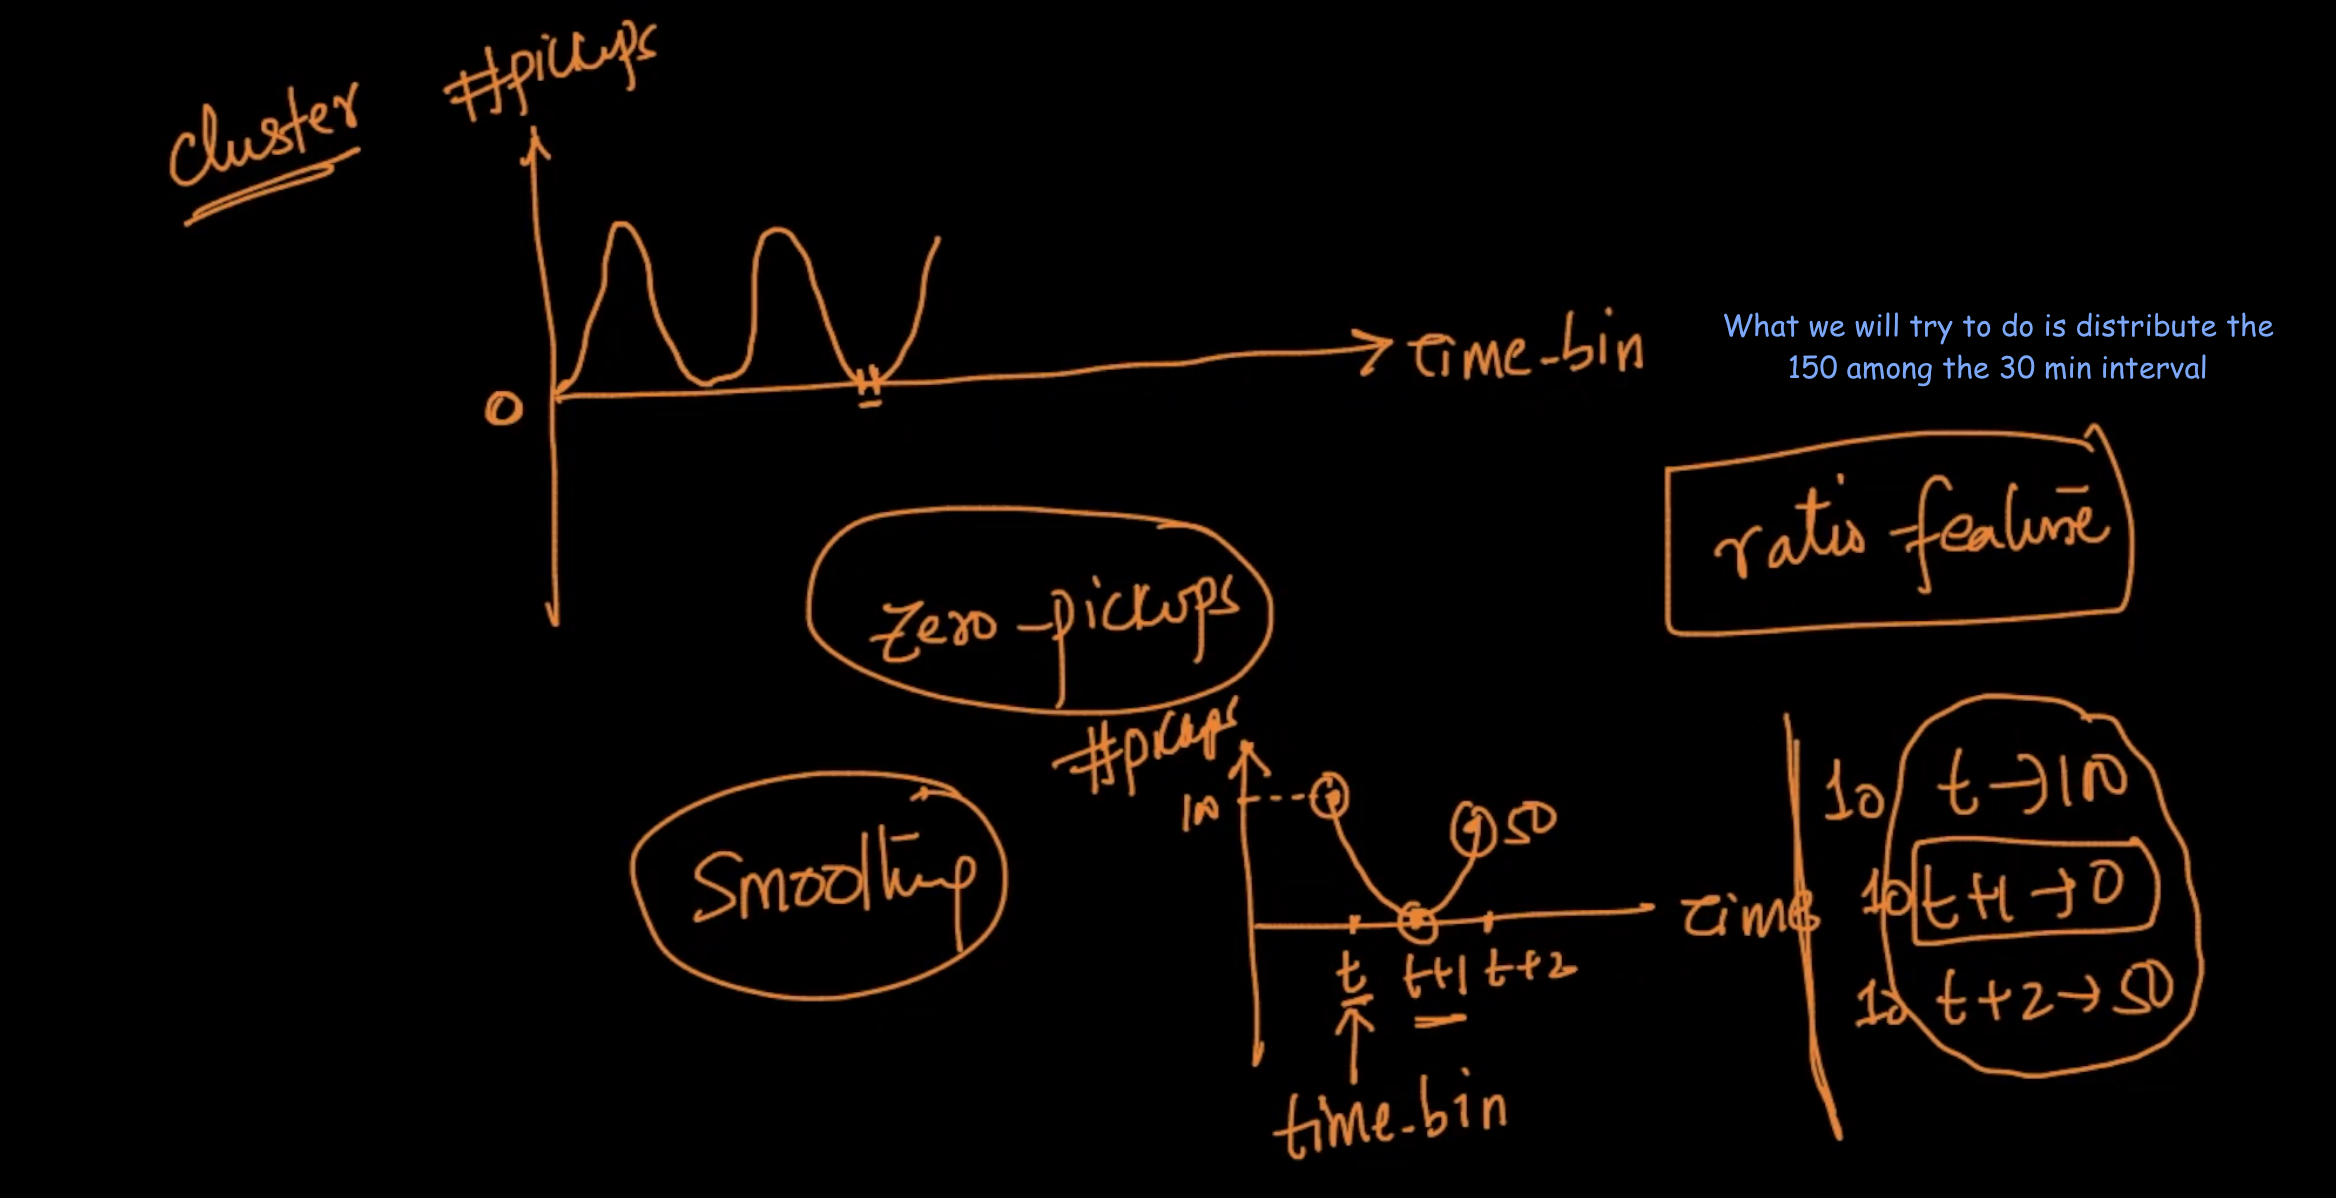 cluster
#pickups
time-bin
0
What we will try to do is distribute the
150 among the 30 min interval
ratio feature
zero-pickups
Smoothing
#pickups
100
50
time
t t+1 t+2
time-bin
10 t → 100
10 t+1 → 0
10 t+2 → 50